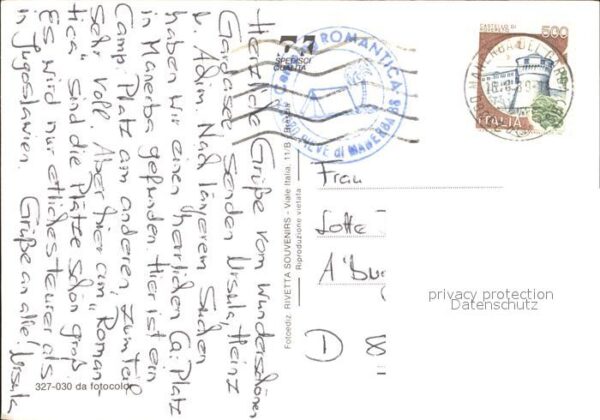 Herzliche Grüße vom wunderschönen
Gardasee senden Ursula, Heinz
u. Achim. Nach längerem Suchen
haben wir einen herrlichen Ca.-Platz
in Manerba gefunden. Hier ist ein
Camp. Platz am anderen, zum Teil
sehr voll. Aber hier am „Roman-
tica" sind die Plätze schön groß
Es wird nur etliches teurer als
in Jugoslawien. Grüße an alle! Ursula
327-030 da fotocolor
Fotoediz. RIVETTA SOUVENIRS - Viale Italia, 11/B
Riproduzione vietata
SPEDISCI
QUALITÀ
ROMANTICA
PIEVE di MANERBA
500
ITALIA
MANERBA DEL
Frau
Lotte
D
privacy protection
Datenschutz